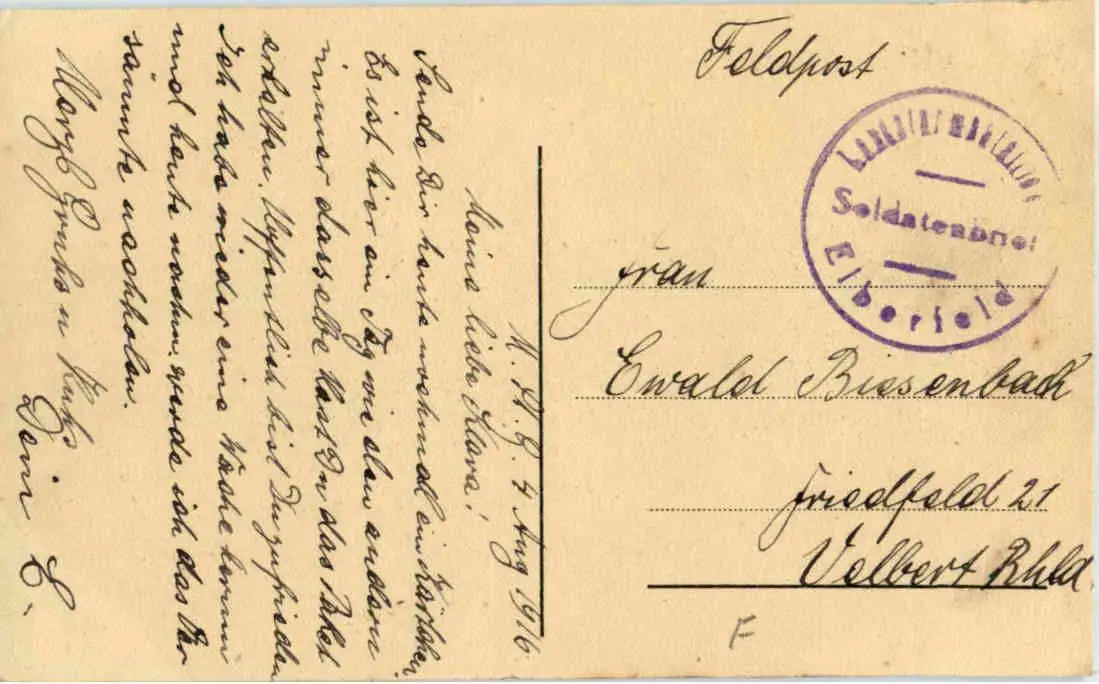 Feldpost
Soldatenbrief
Elberfeld
Frau
Ewald Biesenbach
Friedfeld 21
Velbert Rhld
F
4 Aug 1916.
Meine liebe Klara!
Sende Dir heute nochmal ein Kärtchen.
Es ist hier ein Tag wie den andern
immer dasselbe Hast Du das Paket
erhalten. Hoffentlich bist Du zufrieden
Ich habe wieder eine Wache herum
und heute nachm. werde ich das Ver
säumte nachholen.
Herzl Grüße u Kuss
Dein E.